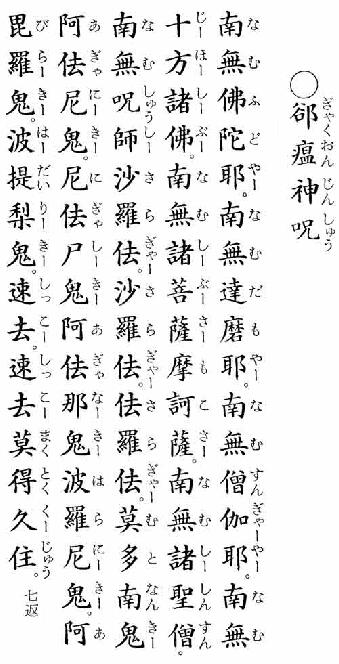 ○郤瘟神呪
ぎゃくおんじんしゅう
南無佛陀耶。南無達磨耶。南無僧伽耶。南無
なむふどやーなむだもやーなむすんぎゃーやーなむ
十方諸佛。南無諸菩薩摩訶薩。南無諸聖僧。
じーほーしーぶーなむしーぶーさーもこさーなむしーしんすん
南無呪師沙羅佉。沙羅佉。佉羅佉。莫多南鬼
なむしゅうしーさらぎゃーさらぎゃーさらぎゃーむとなんきー
阿佉尼鬼。尼佉尸鬼阿佉那鬼波羅尼鬼。阿
あぎゃにーきーにぎゃしーきーあぎゃなーきーはらにーきーあ
毘羅鬼。波提梨鬼。速去。速去莫得久住。七返
びらーきーはーだいりーきーしっこーしっこーまくとくくーじゅう